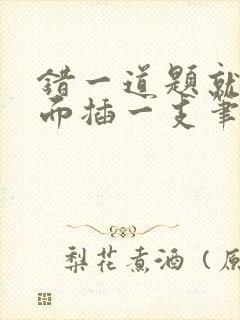 错一道题就
而插一支笔
梨花煮酒（原